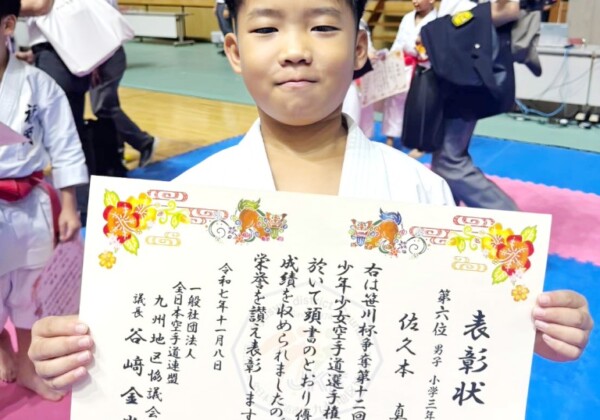 表彰状
第六位 男子 小学三年
佐久本 真
右は笹川杯争奪第十二回
少年少女空手道選手権
於いて頭書のとおり優
成績を収められましたの
栄誉を讃え表彰します
令和七年十一月八日
一般社団法人
全日本空手道連盟
九州地区協議会
議長 谷﨑 金